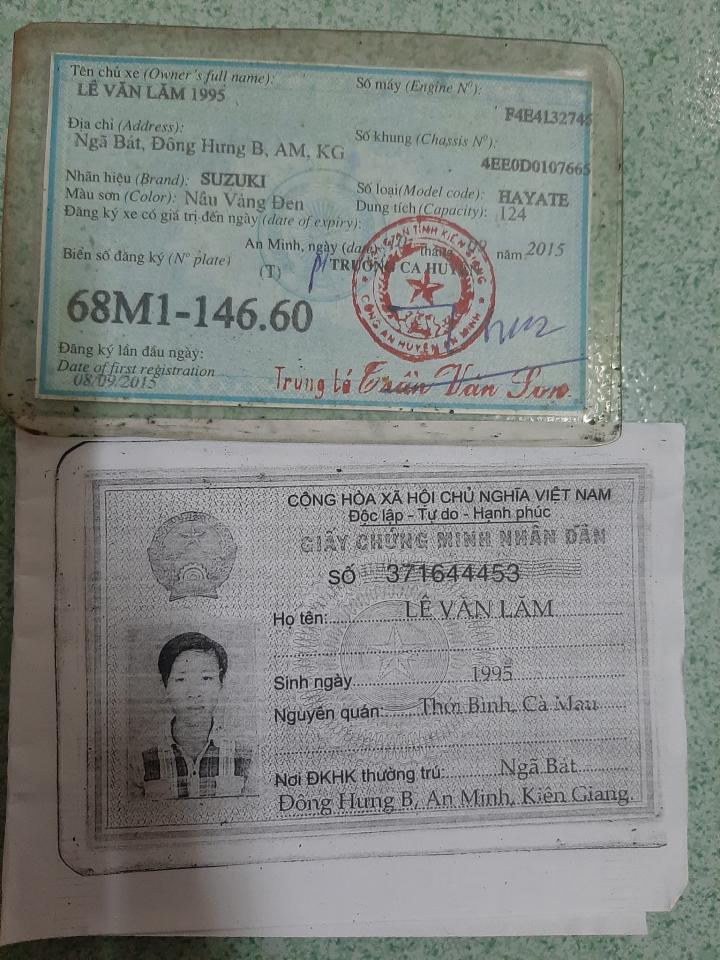 Tên chủ xe (Owner's full name):
LÊ VĂN LĂM 1995
Số máy (Engine Nº):
F4E4132746
Địa chỉ (Address):
Ngã Bát, Đông Hưng B, AM, KG
Số khung (Chassis Nº):
4EE0D0107665
Nhãn hiệu (Brand): SUZUKI
Số loại(Model code): HAYATE
Màu sơn (Color): Nâu Vàng Đen
Dung tích (Capacity): 124
Đăng ký xe có giá trị đến ngày (date of expiry):
An Minh, ngày tháng 09 năm 2015
Biển số đăng ký (Nº plate)
(T)
TRƯỞNG CA HUYỆN
68M1-146.60
CÔNG AN HUYỆN AN MINH
Đăng ký lần đầu ngày:
Date of first registration
08/09/2015
Trung tá Trần Văn Sơn
CỘNG HÒA XÃ HỘI CHỦ NGHĨA VIỆT NAM
Độc lập - Tự do - Hạnh phúc
GIẤY CHỨNG MINH NHÂN DÂN
SỐ 371644453
Họ tên: LÊ VĂN LĂM
Sinh ngày 1995
Nguyên quán: Thới Bình, Cà Mau
Nơi ĐKHK thường trú: Ngã Bát
Đông Hưng B, An Minh, Kiên Giang.